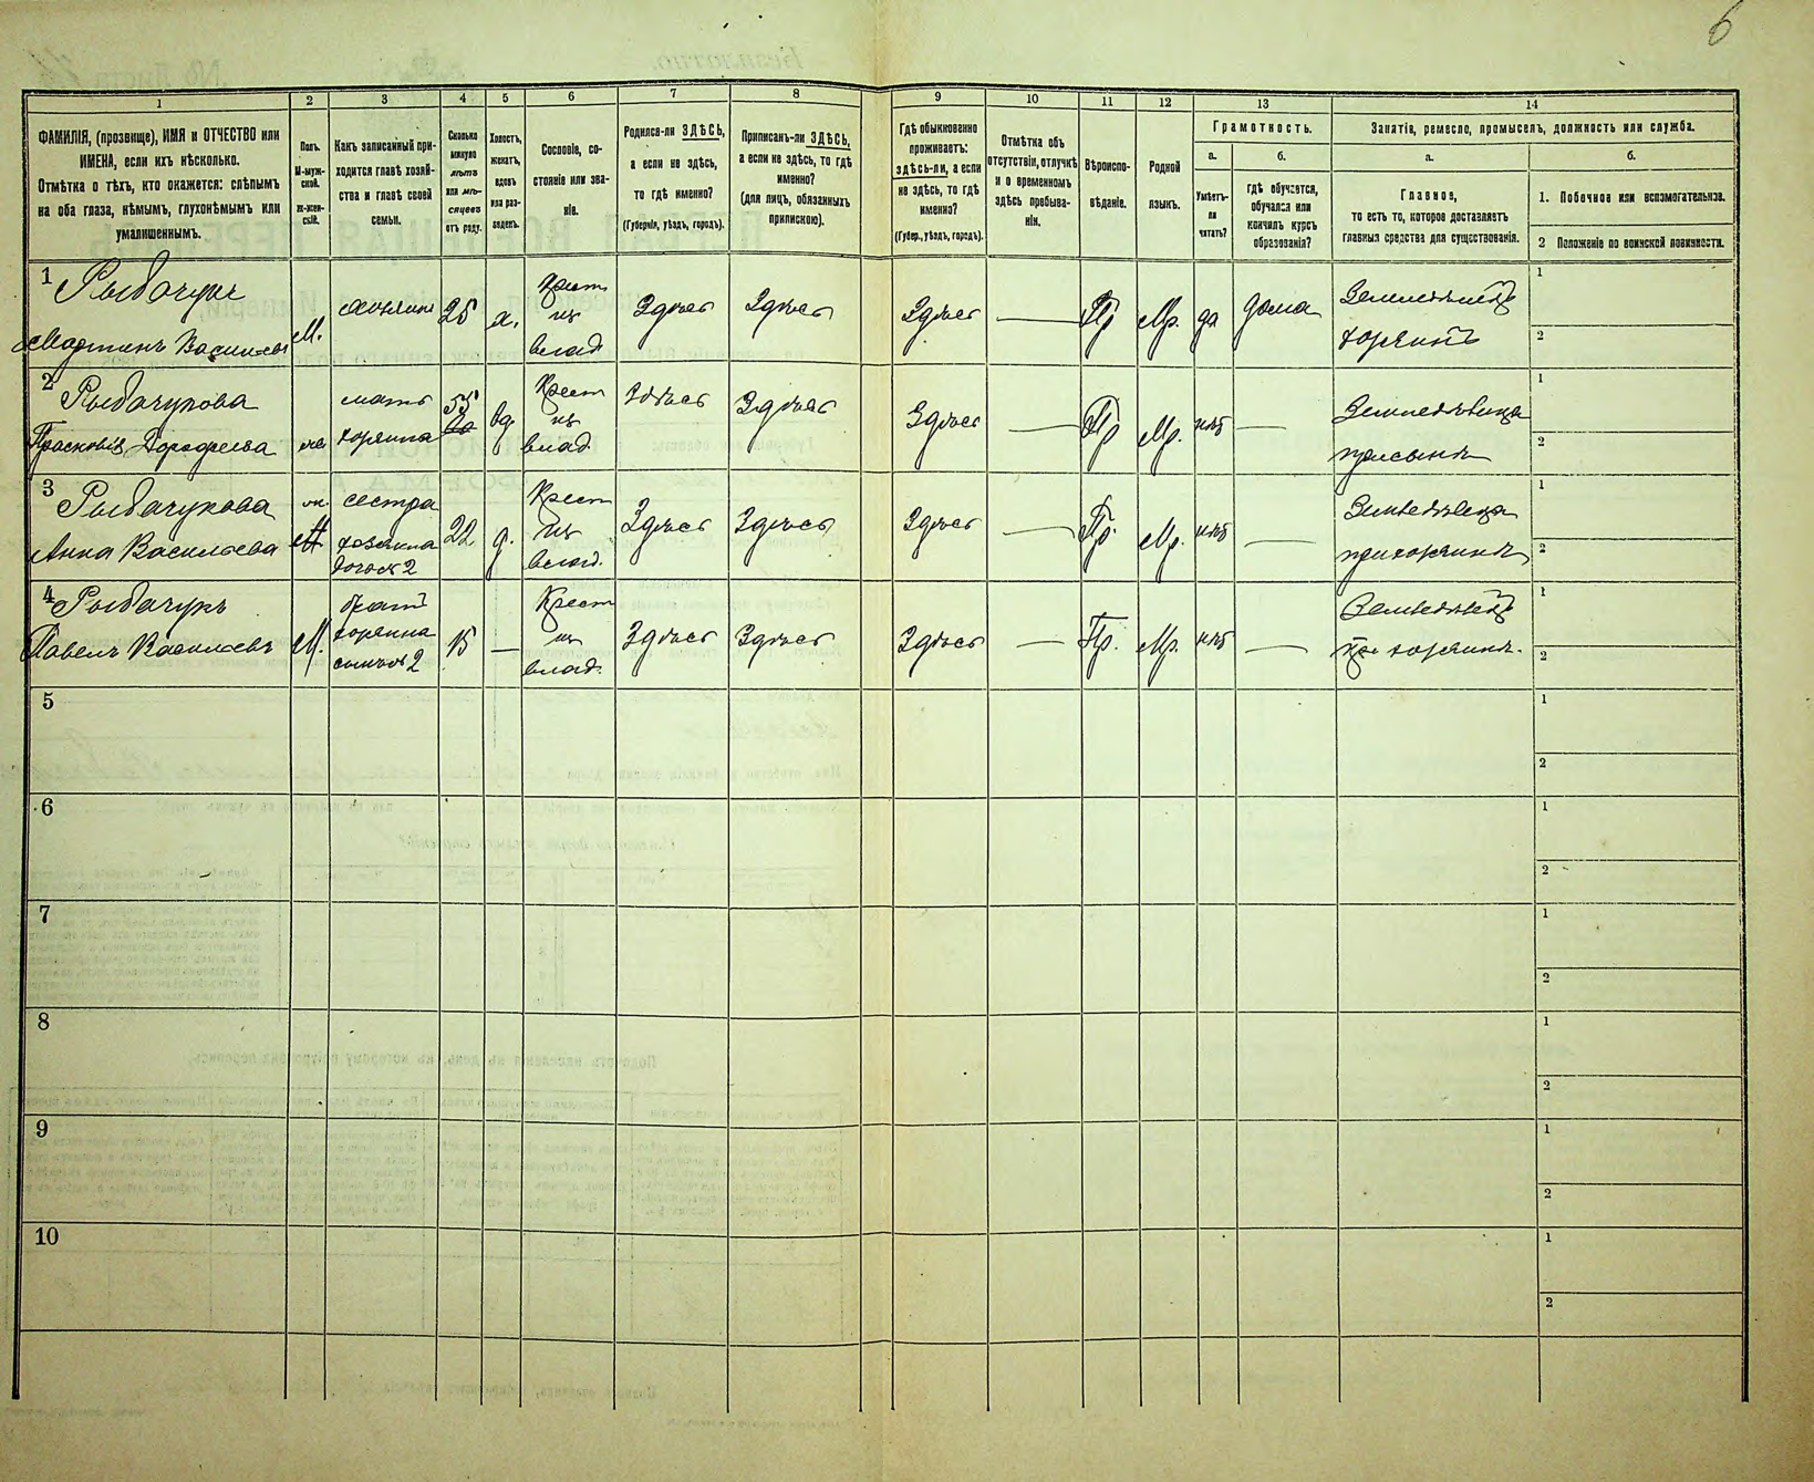 6
1
2
3
4
5
6
7
8
9
10
11
12
13
14
ФАМИЛІЯ, (прозвище), ИМЯ и ОТЧЕСТВО или
ИМЕНА, если ихъ нѣсколько.
Отмѣтка о тѣхъ, кто окажется: слѣпымъ
на оба глаза, нѣмымъ, глухонѣмымъ или
умалишеннымъ.
Полъ.
М-муж-
ской.
ж-жен-
скій.
Какъ записанный при-
ходится главѣ хозяй-
ства и главѣ своей
семьи.
Сколько
минуло
лѣтъ
или мѣ-
сяцевъ
отъ роду.
Холостъ,
женатъ,
вдовъ
или раз-
веденъ.
Сословіе, со-
стояніе или зва-
ніе.
Родился-ли ЗДѢСЬ,
а если не здѣсь,
то гдѣ именно?
(Губернія, уѣздъ, городъ).
Приписанъ-ли ЗДѢСЬ,
а если не здѣсь, то гдѣ
именно?
(для лицъ, обязанныхъ
припискою).
Гдѣ обыкновенно
проживаетъ:
здѣсь-ли, а если
не здѣсь, то гдѣ
именно?
(Губер., уѣздъ, городъ).
Отмѣтка объ
отсутствіи, отлучкѣ
и о временномъ
здѣсь пребыва-
ніи.
Вѣроиспо-
вѣданіе.
Родной
языкъ.
Грамотность.
а.
Умѣетъ-
ли
читать?
б.
гдѣ обучается,
обучался или
кончилъ курсъ
образованія?
Занятіе, ремесло, промыселъ, должность или служба.
а.
Главное,
то есть то, которое доставляетъ
главныя средства для существованія.
б.
1. Побочное или вспомогательное.
2 Положеніе по воинской повинности.
1 Рыбачукъ
Мартинъ Васильевъ
М.
хозяинъ
25
х.
Крест
изъ
влад
Здѣсь
Здѣсь
Здѣсь
Пр
Мр.
да
дома
Земледѣлецъ
хозяинъ
1
2
2 Рыбачукова
Прасковія Дорофеева
ж
мать
хозяина
55
вд.
Крест
изъ
влад.
Здѣсь
Здѣсь
Здѣсь
Пр
Мр.
нѣт
Земледѣлица
при сынѣ
1
2
3 Рыбачукова
Анна Васильева
ж.
сестра
хозяина
дочь 2
22
д.
Крест
изъ
влад.
Здѣсь
Здѣсь
Здѣсь
Пр.
Мр.
нѣт
Земледѣлица
при хозяинѣ
1
2
4 Рыбачукъ
Павелъ Васильевъ
М.
братъ
хозяина
сынъ 2
15
Крест
изъ
влад.
Здѣсь
Здѣсь
Здѣсь
Пр.
Мр.
нѣт
Земледѣлецъ
при хозяинѣ.
1
2
5
1
2
6
1
2
7
1
2
8
1
2
9
1
2
10
1
2